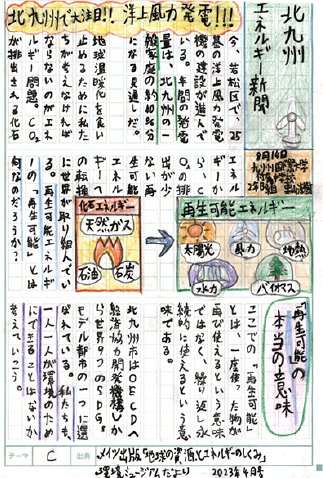 北九州で大注目!! 洋上風力発電!!!
北九州
エネルギー新聞
8月16日
2年B組
今、若松区で、25
基の洋上風力発電
機の建設が進んで
いる。年間の発電
量は、北九州の一
般家庭の約40%分
になる見通しだ。
地球温暖化を食い
止めるために私た
ちが考えなければ
ならないのがエネ
ルギー問題。CO₂
が排出える化石
エネル
ギーか
ら、C
O₂の排
出が少
ない再
生可能
エネル
ギーへ
の転換
に世界が取り組んでい
る。「再生可能」とは
何なのだろうか?
再生可能エネルギー
太陽光
風力
地熱
水力
バイオマス
化石エネルギー
天然ガス
石油
石炭
「再生可能」の
本当の意味
ここでの「再生可能」
とは、一度使った物が
再び使えるという意味
ではなく、繰り返し永
続的に使えるという意
味である。
北九州市はOECD(
経済協力開発機構)か
ら世界9つのSDGs
モデル都市の一つに選
ばれている。私たちも
一人一人が環境のため
にできることはないか
考えていこう。
テーマ C 出典 メイツ出版「地球の資源とエネルギーのしくみ」
環境ミュージアムだより 2023年4月号